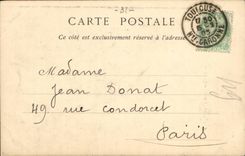 -32-
CARTE POSTALE
Ce côté est exclusivement réservé à l'adresse
TOULOUSE
Hte GARONNE
Madame
Jean Donat
49 rue Condorcet
Paris